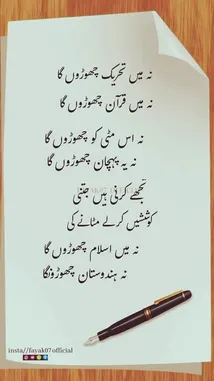 نہ میں تحریک چھوڑوں گا
نہ میں قرآن چھوڑوں گا
نہ اس مٹی کو چھوڑوں گا
نہ یہ پہچان چھوڑوں گا
تجھے کرنی ہیں جتنی
کوششیں کرلے مٹانے کی
نہ میں اسلام چھوڑوں گا
نہ ہندوستان چھوڑونگا
insta//fayak07official